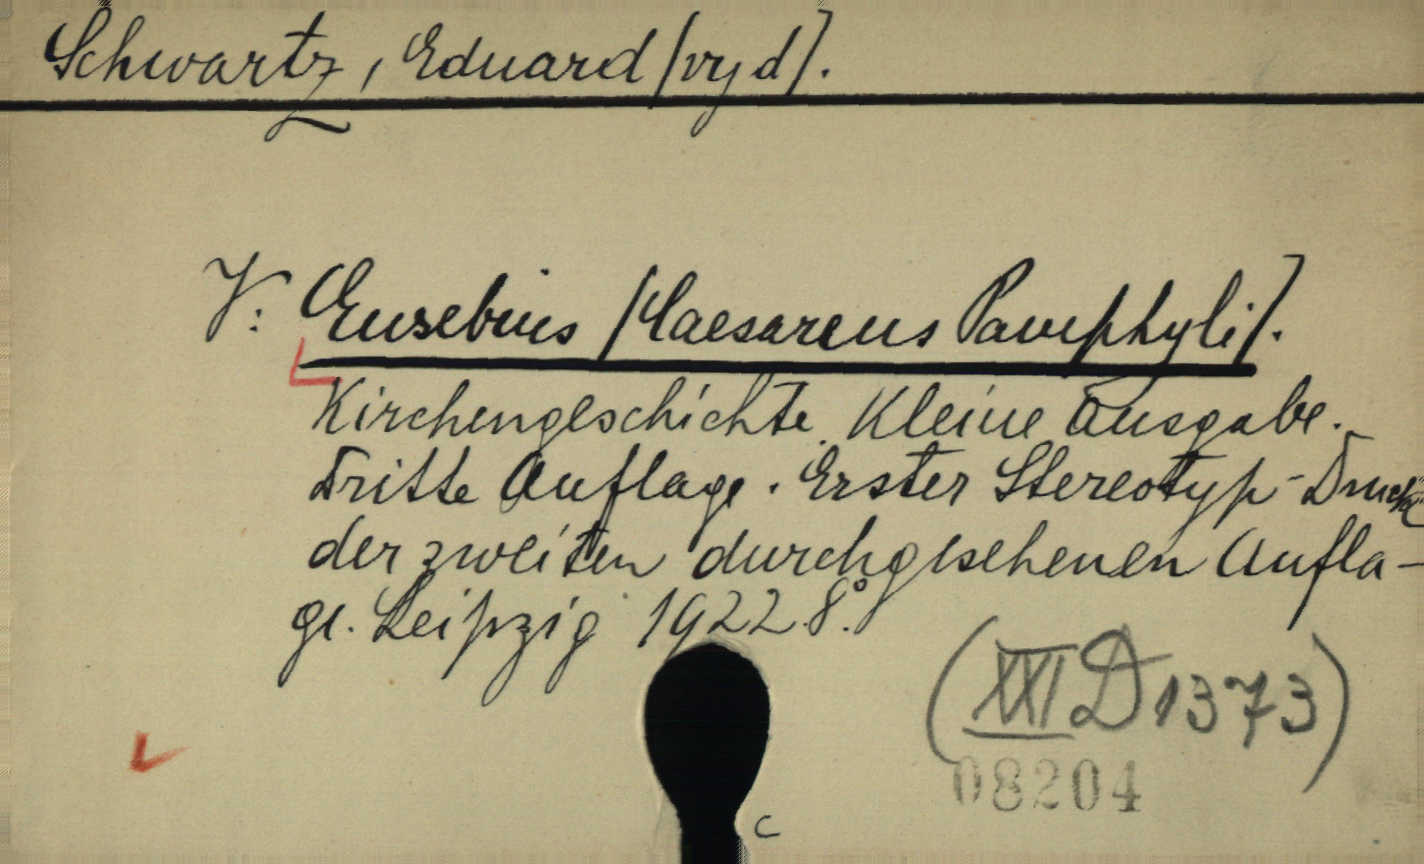 Schwartz, Eduard [vyd].
V: Eusebius [Caesareus Pamphyli].
Kirchengeschichte. Kleine Ausgabe.
Dritte Auflage. Erster Stereotyp-Druck
der zweiten durchgesehenen Aufla-
ge. Leipzig 1922. 8°.
(XXI D 1373)
08204
c